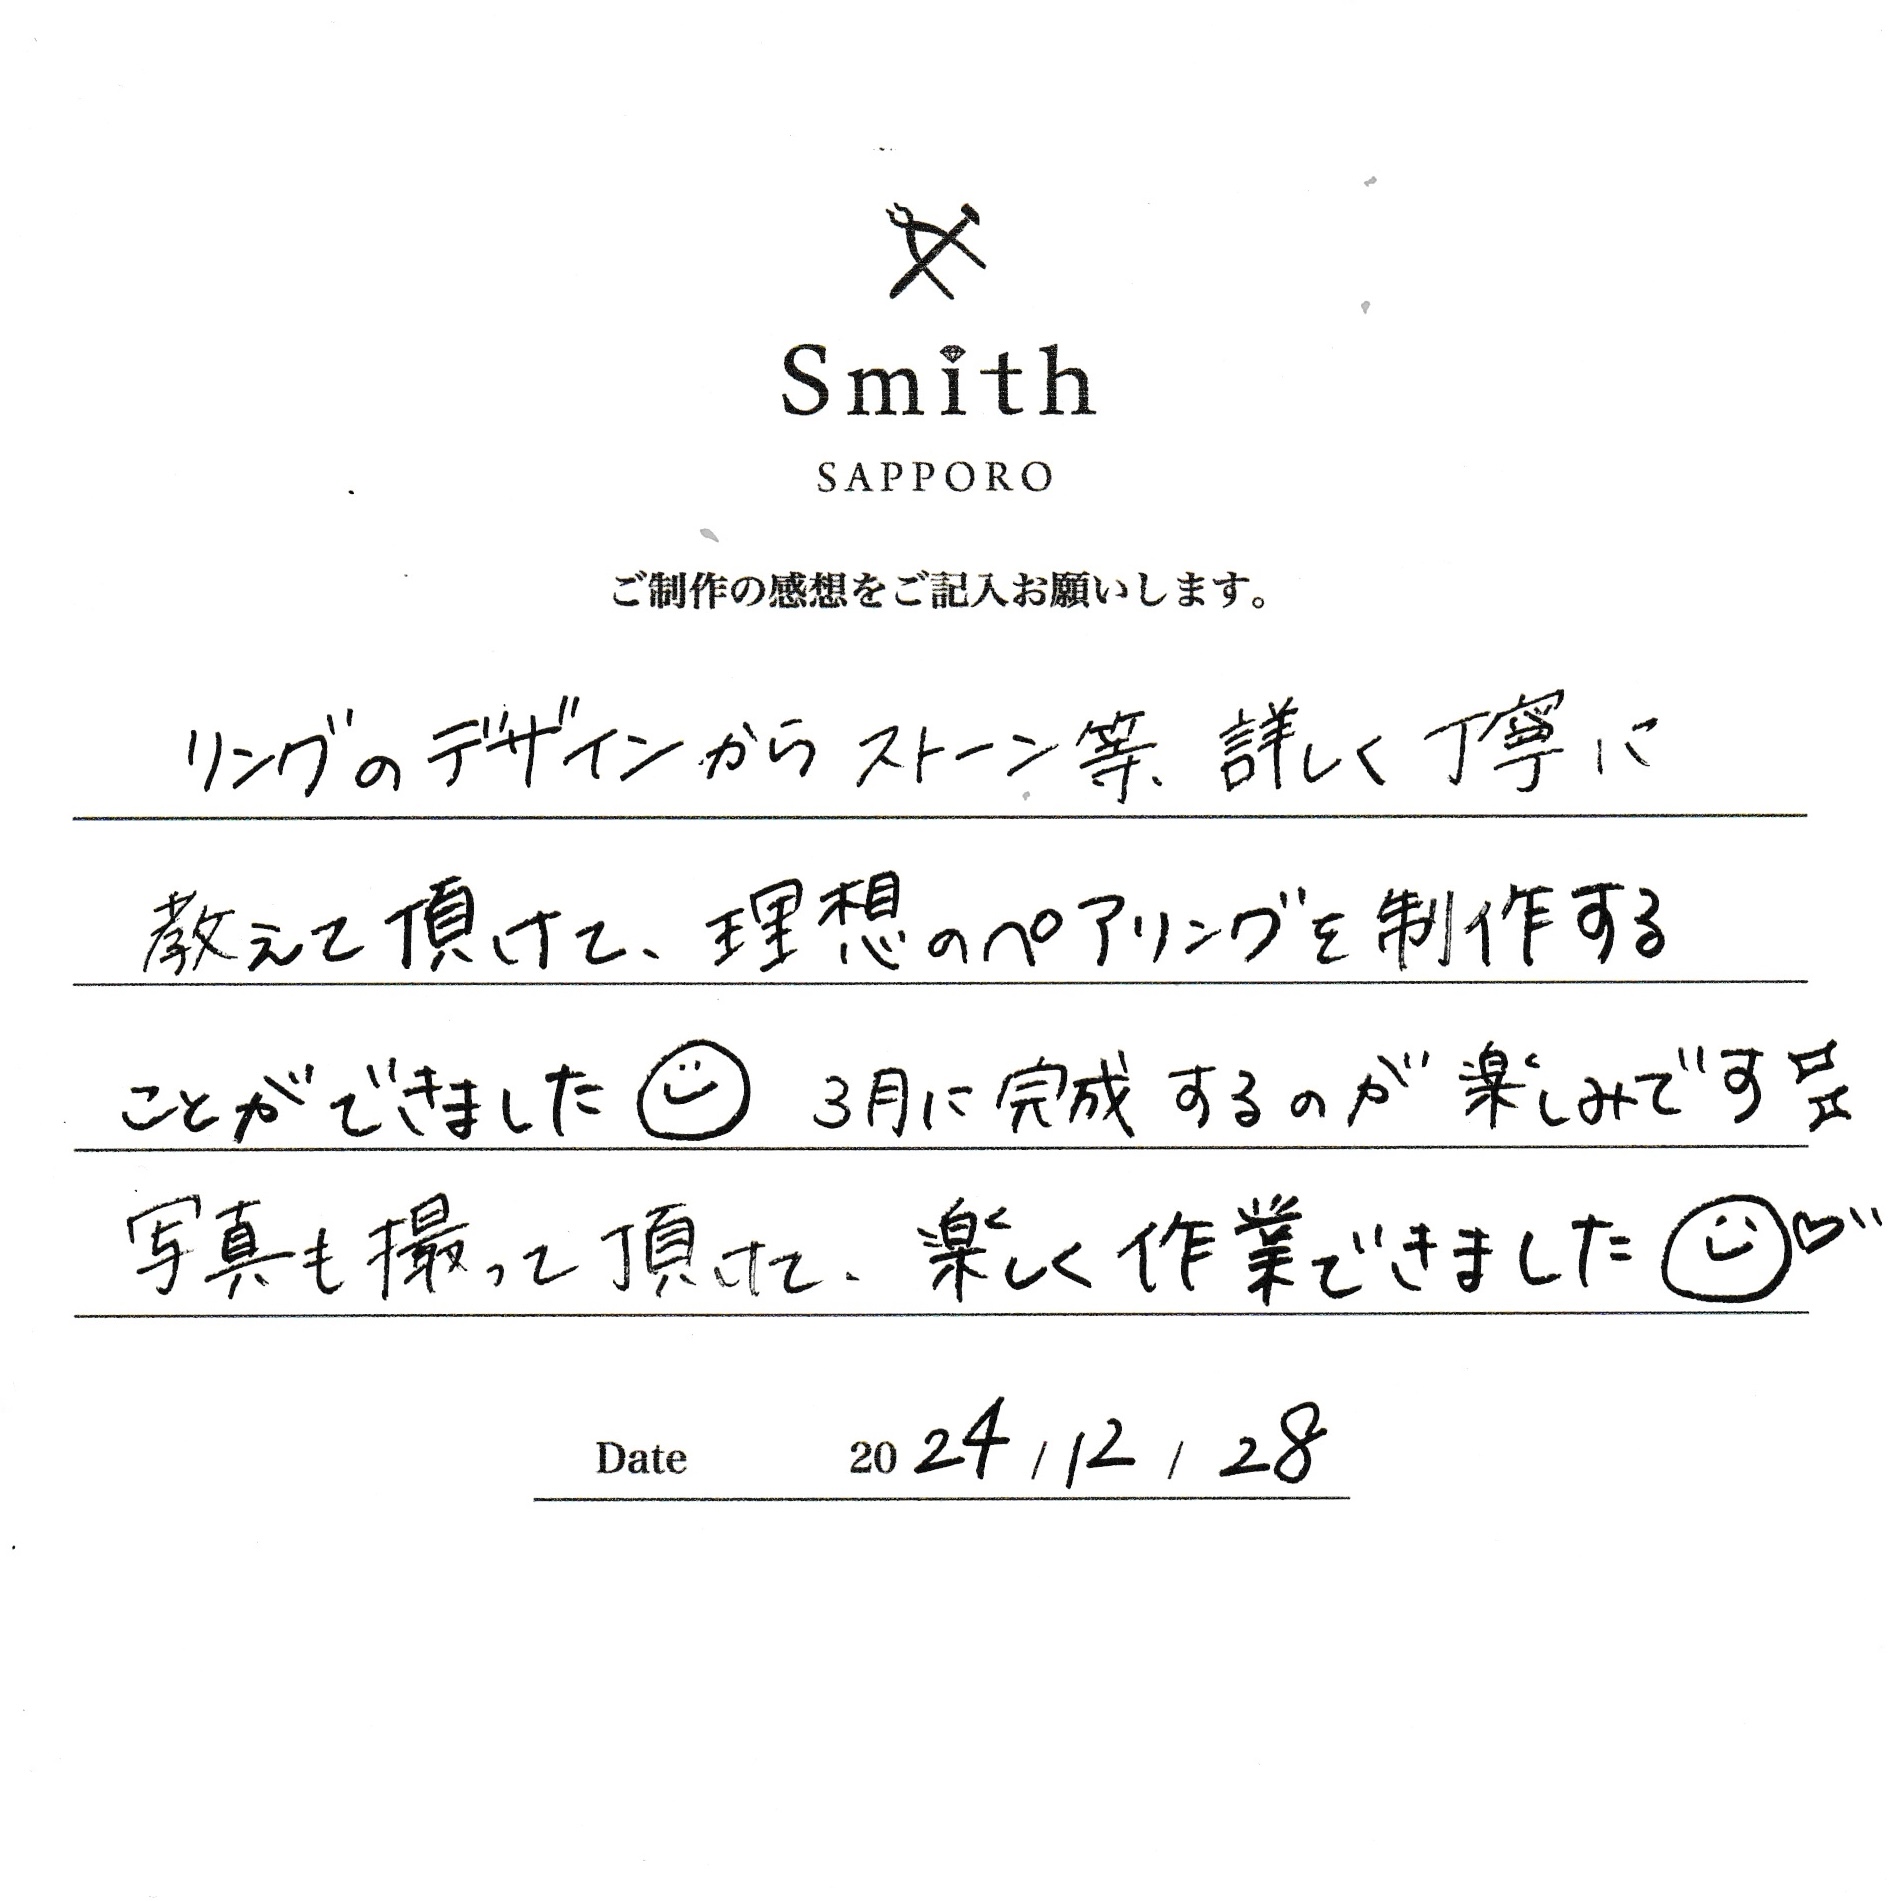 Smith
SAPPORO
ご制作の感想をご記入お願いします。
リングのデザインからストーン等、詳しく丁寧に
教えて頂けて、理想のペアリングを制作する
ことができました 3月に完成するのが楽しみです
写真も撮って頂けて、楽しく作業できました
Date 2024/12/28